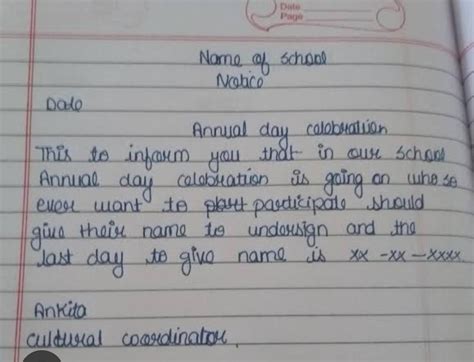 Date
Page
Name of School
Notice
Date
Annual day calobration
This to inform you that in our School
Annual day colobration is going on who so
ever want to part participate should
give their name to undersign and the
last day to give name is xx - xx - xxxx
Ankita
cultural coordinator.